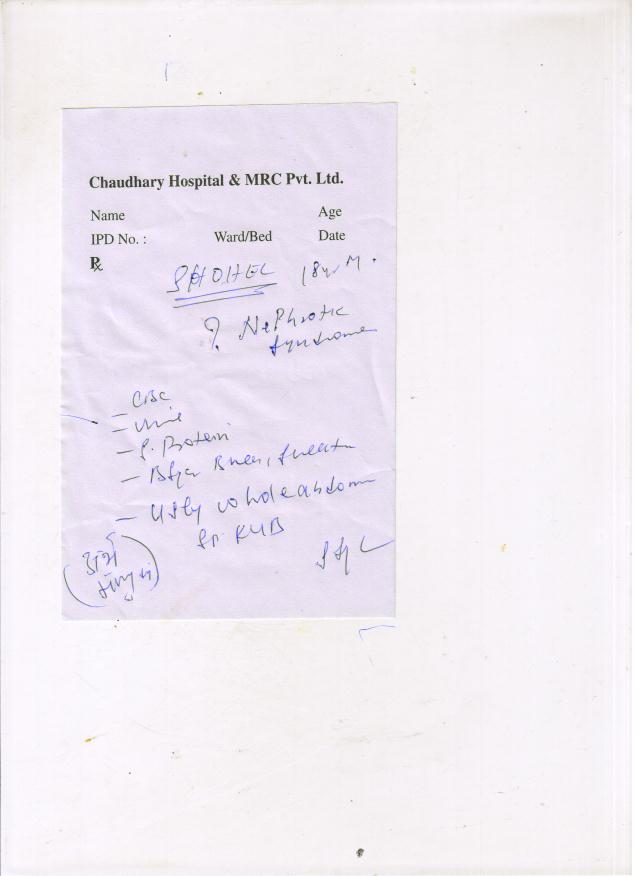 Chaudhary Hospital & MRC Pvt. Ltd.
Name Age
IPD No. : Ward/Bed Date
℞
SHOHEL 18yr M.
? Nephrotic
Syndrome
— CBC
— Urine
— S. Protein
— Urea,
— USG whole abdomen
KUB